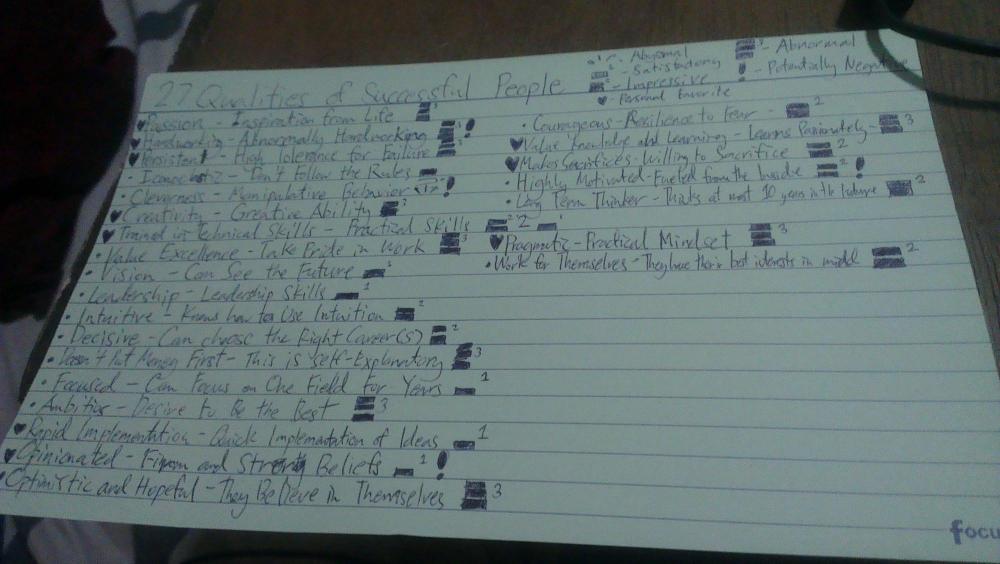 27 Qualities of Successful People
Abysmal
Satisfactory
Impressive
Personal Favorite
3 - Abnormal
! - Potentially Negative
♥Passion - Inspiration from Life
♥Hardworking - Abnormally Hardworking !
♥Persistent - High Tolerance for Failure
- Don't Follow the Rules
• Cleverness - Manipulative Behavior !
♥Creativity - Creative Ability
♥Trained in Technical Skills - Practical Skills
• Value Excellence - Take Pride in Work 3
• Vision - Can See the Future 1
• Leadership - Leadership Skills 1
• Intuitive - Knows how to Use Intuition 2
• Decisive - Can choose the Right Career(s) 2
• Doesn't Put Money First - This is Self-Explanatory 3
• Focused - Can Focus on One Field for Years 1
• Ambitius - Desire to Be the Best 3
♥Rapid Implementation - Quick Implemantation of Ideas 1
♥Opinionated - and Strong Beliefs 1 !
Optimistic and Hopeful - They Believe in Themselves 3
• Courageous - Resilience to Fear - 2
♥Value and Learning - Learns Passionately - 3
♥Makes Sacrifices - Willing to Sacrifice 2
• Highly Motivated - Fueled from the Inside 2 !
• Long Term Thinker - Thinks at most 10 years into Future 2
♥Pragmatic - Practical Mindset 3
• Work for Themselves - They have their best interests in mind 2
focu